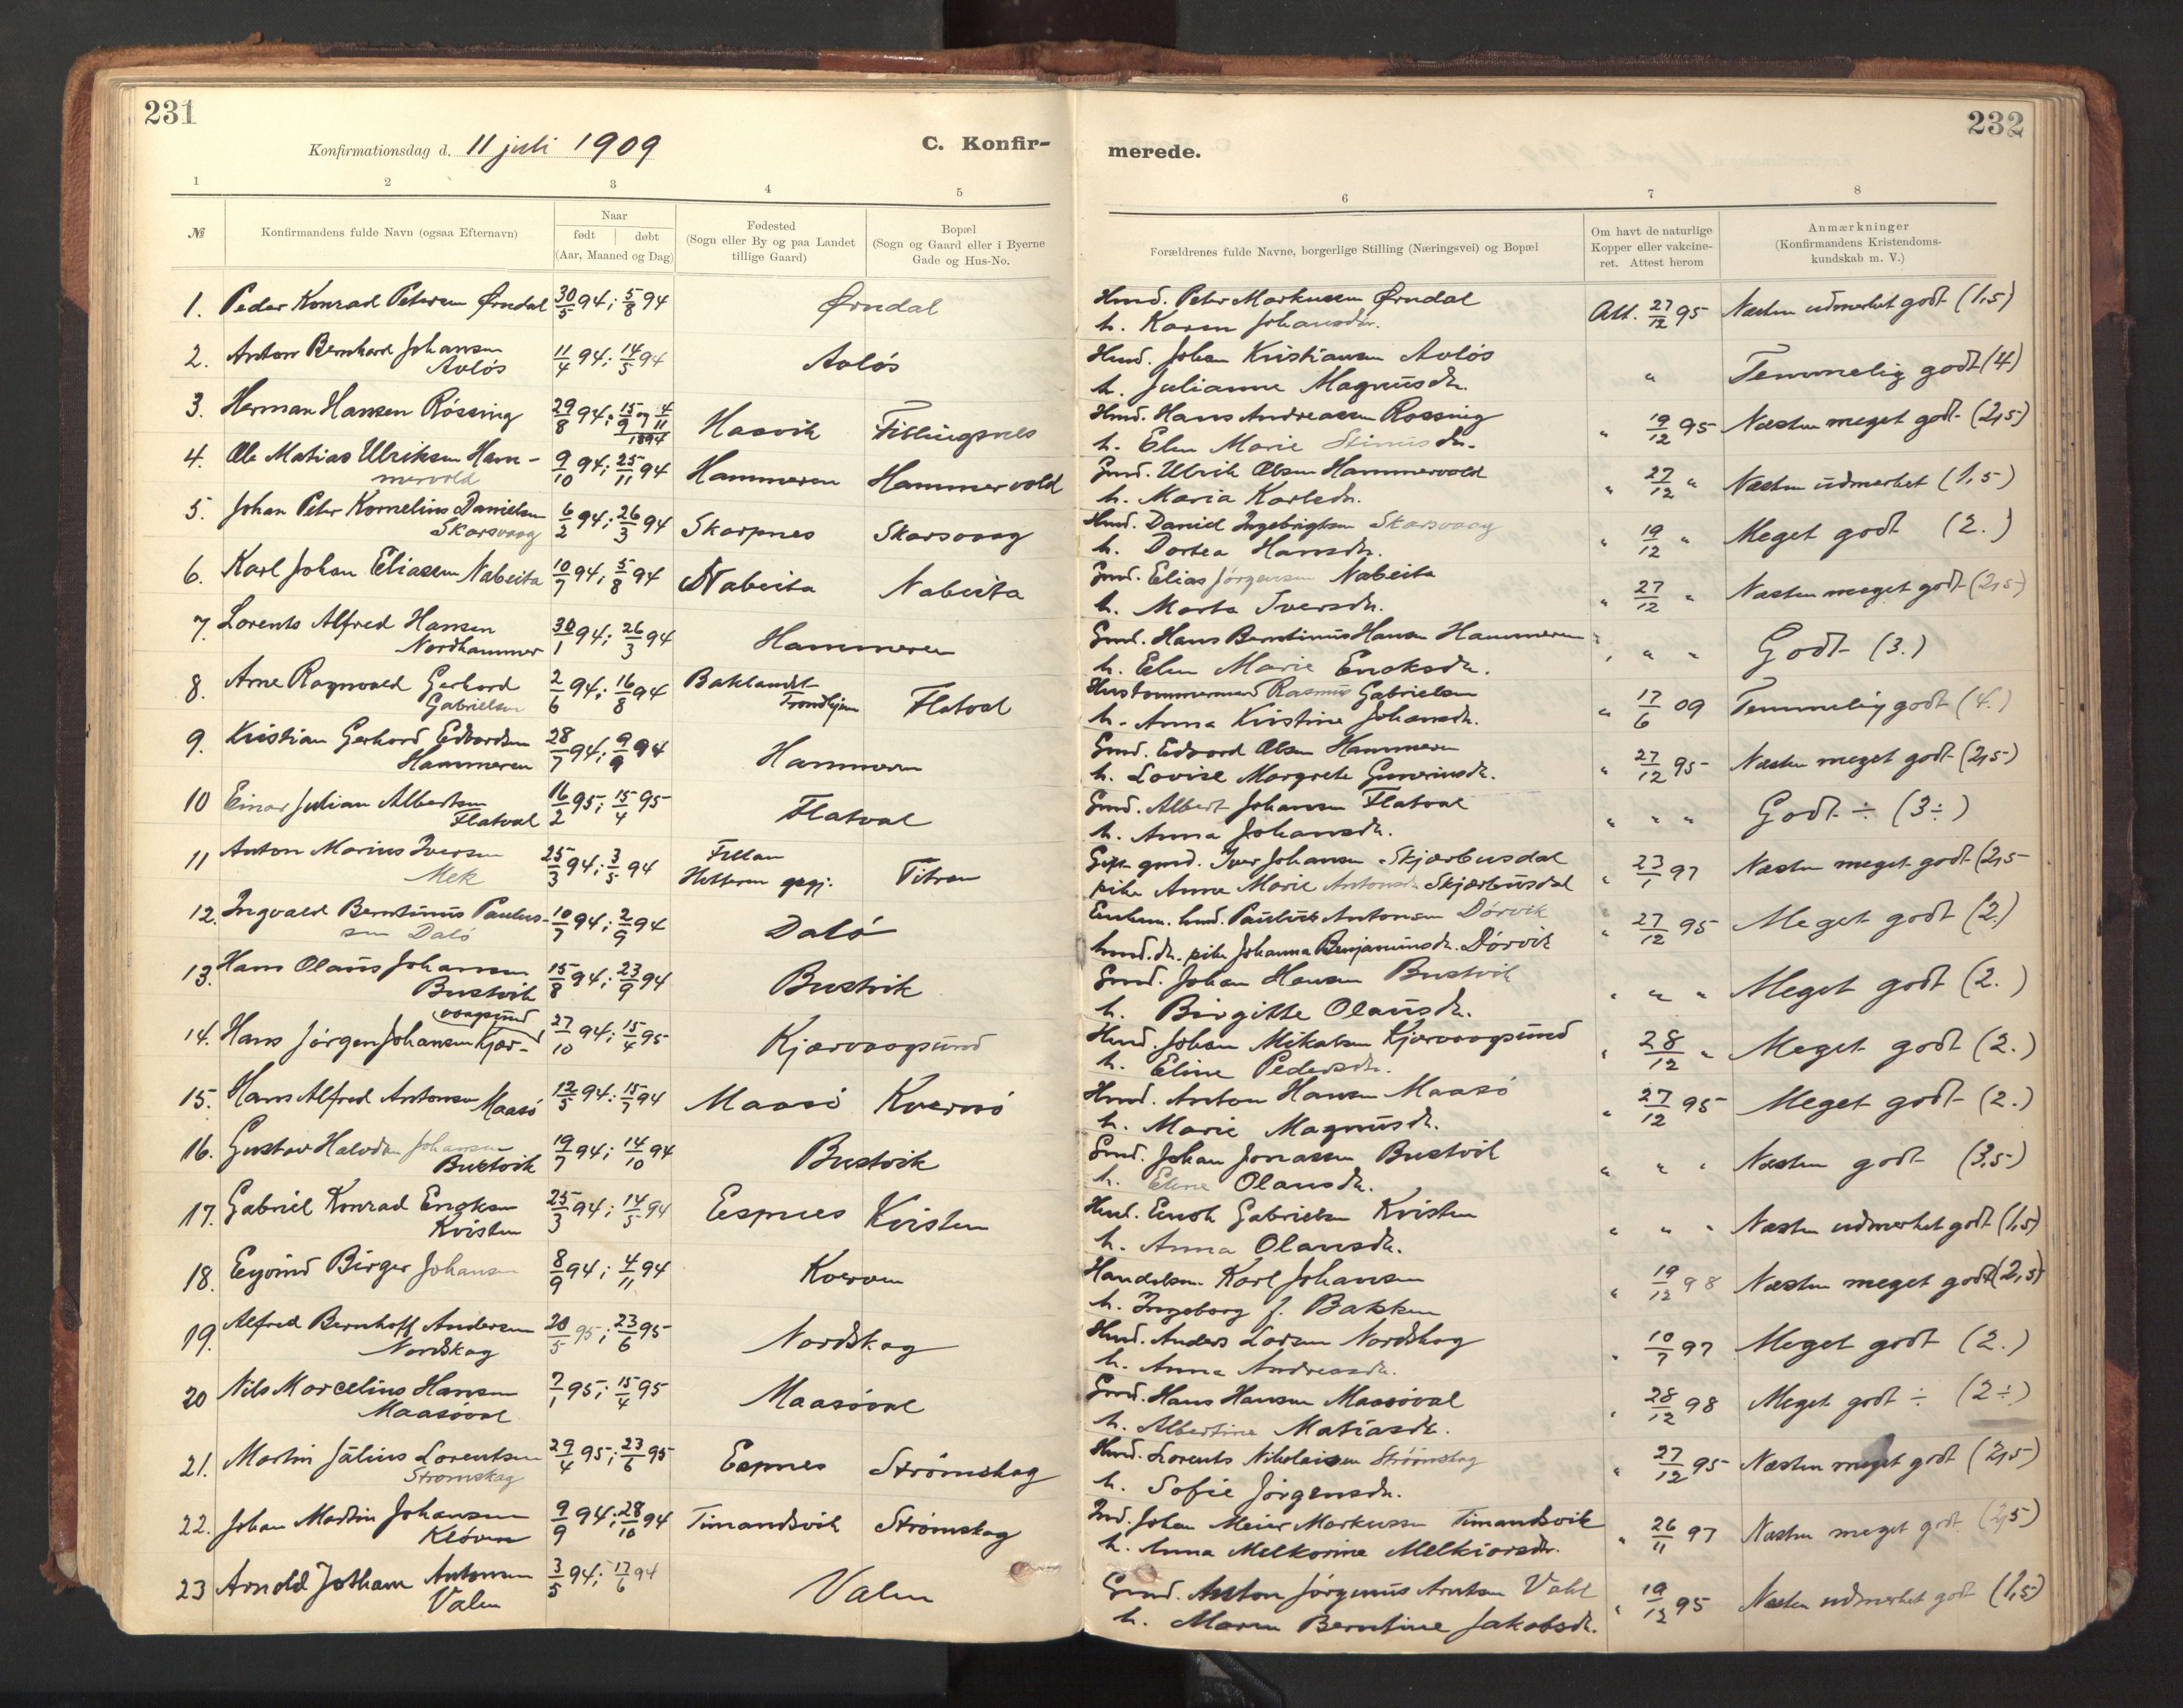 231
232
Konfirmationsdag d. 11 juli 1909
C. Konfir-
merede.
1 2 3 4 5 6 7 8
№ Konfirmandens fulde Navn (ogsaa Efternavn) Naar født døbt (Aar, Maaned og Dag)
Fødested (Sogn eller By og paa Landet tillige Gaard)
Bopæl (Sogn og Gaard eller i Byerne Gade og Hus-No.
Forældrenes fulde Navne, borgerlige Stilling (Næringsvei) og Bopæl
Om havt de naturlige Kopper eller vakcineret. Attest herom
Anmærkninger (Konfirmandens Kristendomskundskab m. V.)
1. Peder Konrad Petersen Ørndal 30/5 94; 5/8 94 Ørndal Hmd. Peter Markussen Ørndal Att. 27/12 95 Næsten udmerket godt (1,5)
h. Karen Johansdtr.
2. Anton Bernhard Johansen 11/4 94; 14/5 94 Avløs Hmd. Johan Kristiansen Avløs " Temmelig godt (4)
Avløs h. Julianne Magnusdr.
3. Herman Hansen Røssing 29/8 94; 15/9 og 4/11 1894 Haavik Fillingsnes Hmd. Hans Andreassen Røssing " 19/12 95 Næsten meget godt (2,5)
h. Elen Marie dr.
4. Ole Matias Ulriksen Ham- 9/10 94; 25/11 94 Hammeren Hammervold Gmd. Ulrik Olsen Hammervold " 27/12 " Næsten udmerket (1,5)
mervold h. Maria Karlsdr.
5. Johan Peter Kornelius Danielsen 6/2 94; 26/3 94 Skarpnes Skarsvaag Hmd. Daniel Ingebrigtsen Skarsvaag " 19/12 " Meget godt (2.)
Skarsvaag h. Dortea Hansdr.
6. Karl Johan Eliassen Nabeita 10/7 94; 5/8 94 Nabeita Nabeita Gmd. Elias Jørgensen Nabeita " 27/12 " Næsten meget godt (2,5)
h. Marta Iversdr.
7. Lorents Alfred Hansen 30/1 94; 26/3 94 Hammeren Gmd. Hans Berntinus Hansen Hammeren " " " Godt (3.)
Nordhammer h. Elen Marie Enoksdr.
8. Arne Ragnvald Gerhard 2/6 94; 16/8 94 Baklandet Trondhjem Flatval Hustømmermand Rasmus Gabrielsen " 17/6 09 Temmelig godt (4.)
Gabrielsen h. Anna Kristine Johansdr.
9. Kristian Gerhard Edvardsen 28/7 94; 9/9 94 Hammeren Gmd. Edvard Olsen Hammeren " 27/12 95 Næsten meget godt (2,5)
Hammeren h. Lovise Margrete Gunneriusdr.
10 Einar Julian Albertsen 16/2 95; 15/4 95 Flatval Gmd. Albert Johansen Flatval " " " Godt ÷ (3÷)
Flatval h. Anna Johansdr.
11 Anton Marius Iversen 25/3 94; 3/5 94 Fillan Hitteren prgj. Titran Gift gmd. Iver Johansen Skjærbusdal " 23/1 97 Næsten meget godt (2,5
Mek pike Anna Marie Antonsdr. Skjærbusdal
12. Ingvald Berntinus Paulus- 10/7 94; 2/9 94 Dalø Enkem. hmd. Paulus Antonsen Dørvik " 27/12 95 Meget godt (2.)
sen Dalø hmd. dr. pike Johanna Benjaminsdr. Dørvik
13. Hans Olaus Johansen 15/8 94; 23/9 94 Bustvik Gmd. Johan Hansen Bustvik " " " Meget godt (2.)
Bustvik h. Birgitte Olausdr.
14. Hans Jørgen Johansen Kjær- 27/10 94; 15/4 95 Kjærvaagsund Hmd. Johan Mikalsen Kjærvaagsund " 28/12 " Meget godt (2.)
vaagsund h. Eline Pedersdr.
15. Hans Alfred Antonsen Maasø 12/5 94; 15/7 94 Maasø Kvernø Hmd. Anton Hansen Maasø " 27/12 95 Meget godt (2.)
h. Marie Magnusdr.
16. Gustav Halvdan Johansen 19/7 94; 14/10 94 Bustvik Gmd. Johan Jonassen Bustvik " " " Næsten godt (3,5)
Bustvik h. Eline Olausdr.
17. Gabriel Konrad Enoksen 25/3 94; 14/5 94 Espnes Kvisten Hmd. Enok Gabrielsen Kvisten " " " Næsten udmerket godt (1,5)
Kvisten h. Anna Olausdr.
18. Eyvind Birger Johansen 8/9 94; 4/11 94 Kverven Handelsm. Karl Johansen " 19/12 98 Næsten meget godt (2,5)
h. Ingeborg f. Bakken
19. Alfred Bernhoff Andersen 20/5 95; 23/6 95 Nordskag Hmd. Anders Larsen Nordskag " 10/7 97 Meget godt (2.)
Nordskag h. Anna Andreasdr.
20 Nils Marcelius Hansen 7/1 95; 15/4 95 Maasøval Gmd. Hans Hansen Maasøval " 28/12 98 Meget godt ÷ (2÷)
Maasøval h. Albertine Matiasdr.
21. Martin Julius Lorentsen 29/4 95; 23/6 95 Espnes Strømskag Hmd. Lorents Nikolaisen Strømskag " 27/12 95 Næsten meget godt (2,5)
Strømskag h. Sofie Jørgensdr.
22. Johan Martin Johansen 9/9 94; 28/10 94 Timandsvik Strømskag Ind. Johan Meier Markussen Timandsvik " 26/11 97 Næsten meget godt (2,5)
Kløven h. Anna Melkorine Melkiorsdr.
23 Arnold Jotham Antonsen 3/5 94; 17/6 94 Valen Gmd. Anton Jørginus Arntsen Valen " 19/12 95 Næsten udmerket godt (1,5)
Valen h. Maren Berntine Jakobsdr.